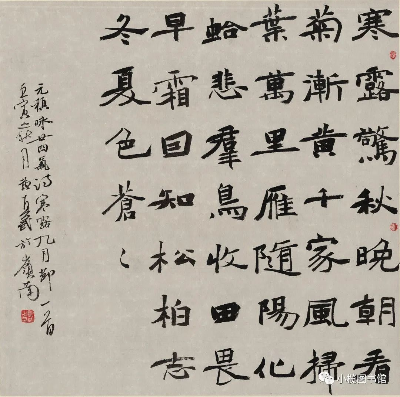 寒露驚秋晚朝看
菊漸黃千家風掃
葉萬里雁隨陽化
蛤悲羣鳥收田畏
早霜因知松柏志
冬夏色蒼〻
元稹咏廿四氣詩寒露九月節一首
壬寅之秋月於嶺南
小榄图书馆